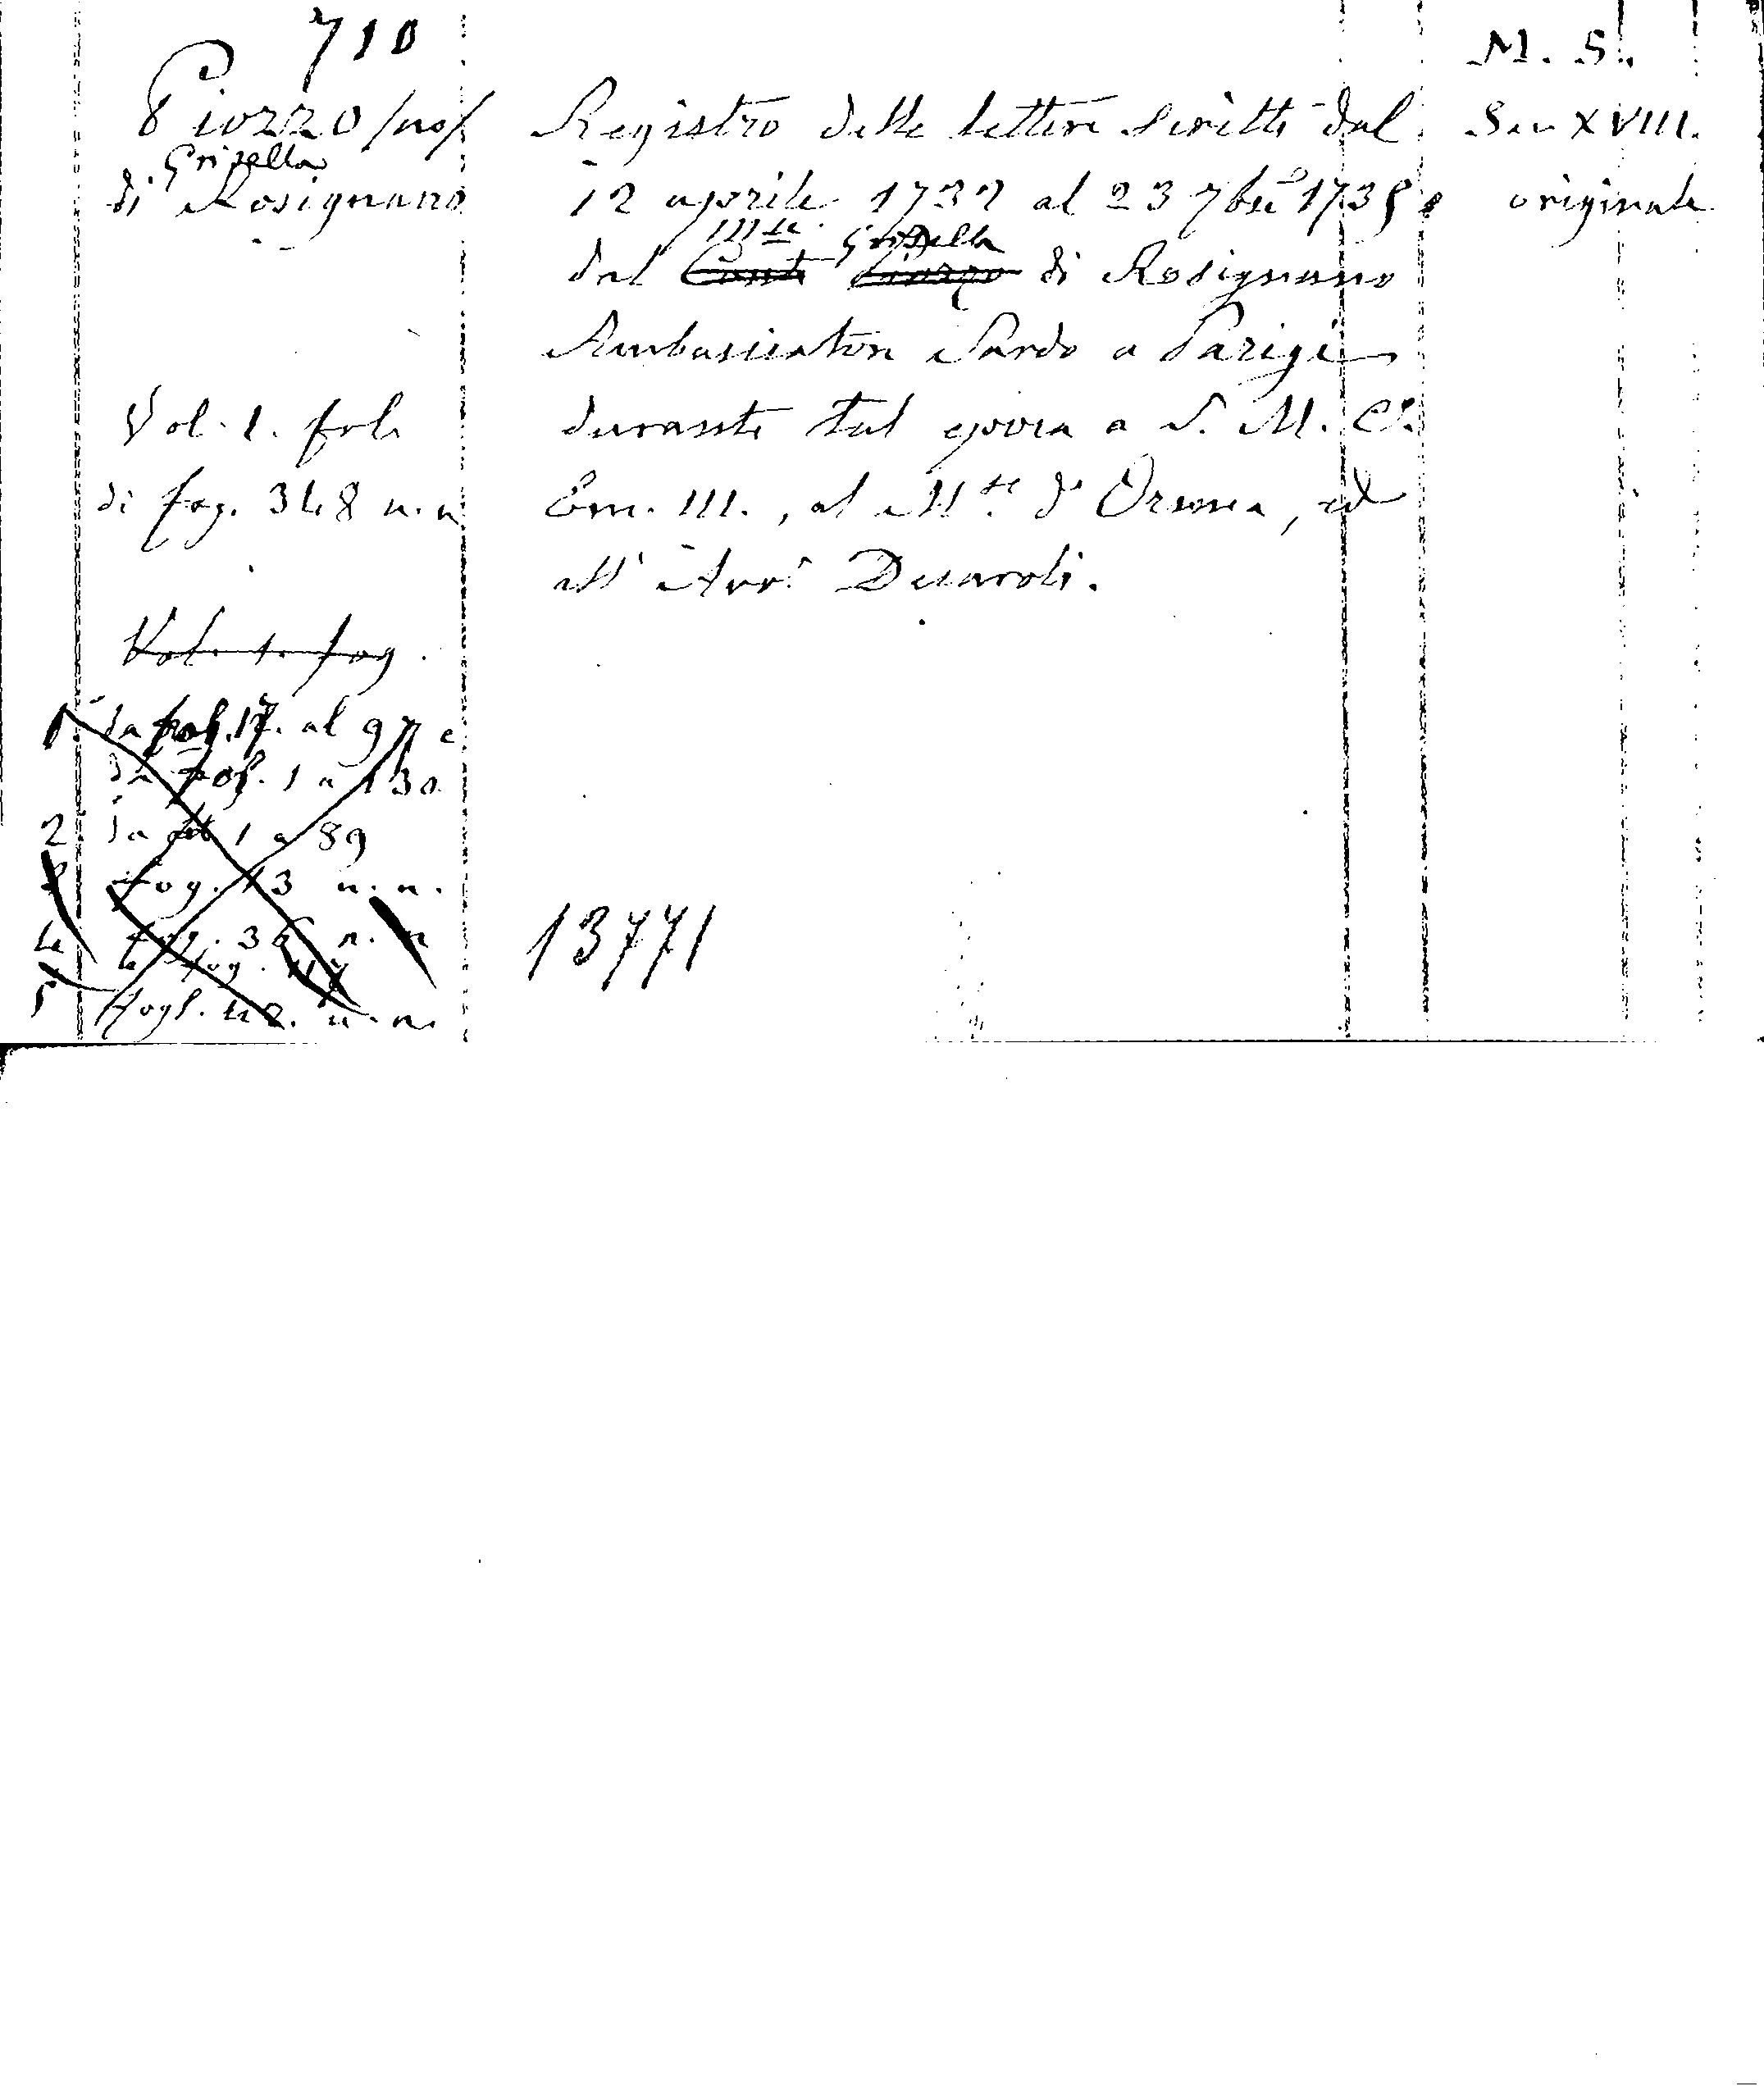 710
M. S.
Piozzo /no/
Grisella
di Rosignano
Registro delle lettere scritte dal
12 aprile 1732 al 23 7bre 1735
Mse Grisella
dal Conte Piozzo di Rosignano
Ambasciatore Sardo a Parigi
durante tal epoca a S. M. C.
Em. III., al Mse d'Ormea, ed
all' Avv. Decaroli.
Sec XVIII.
originale
Vol. 1. fol.
di fog. 348 n. n
Vol. 1. fog.
1. da fog. 17. al 97 e
da fog. 1 a 130
2 da 1 a 89
fog. 13 n. n.
4 fog. 36 n. n
fog.
5 fogl. 42. n. n.
13771